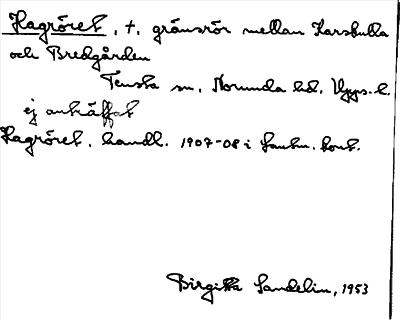 Hagröret, †, gränsrör mellan Karsbulla
och Bredgården
Tensta sn, Norunda hd, Upps. l.
ej anträffat
Hagröret, handl. 1907-08 i Lantm. kont.
Birgitta Sandelin, 1953